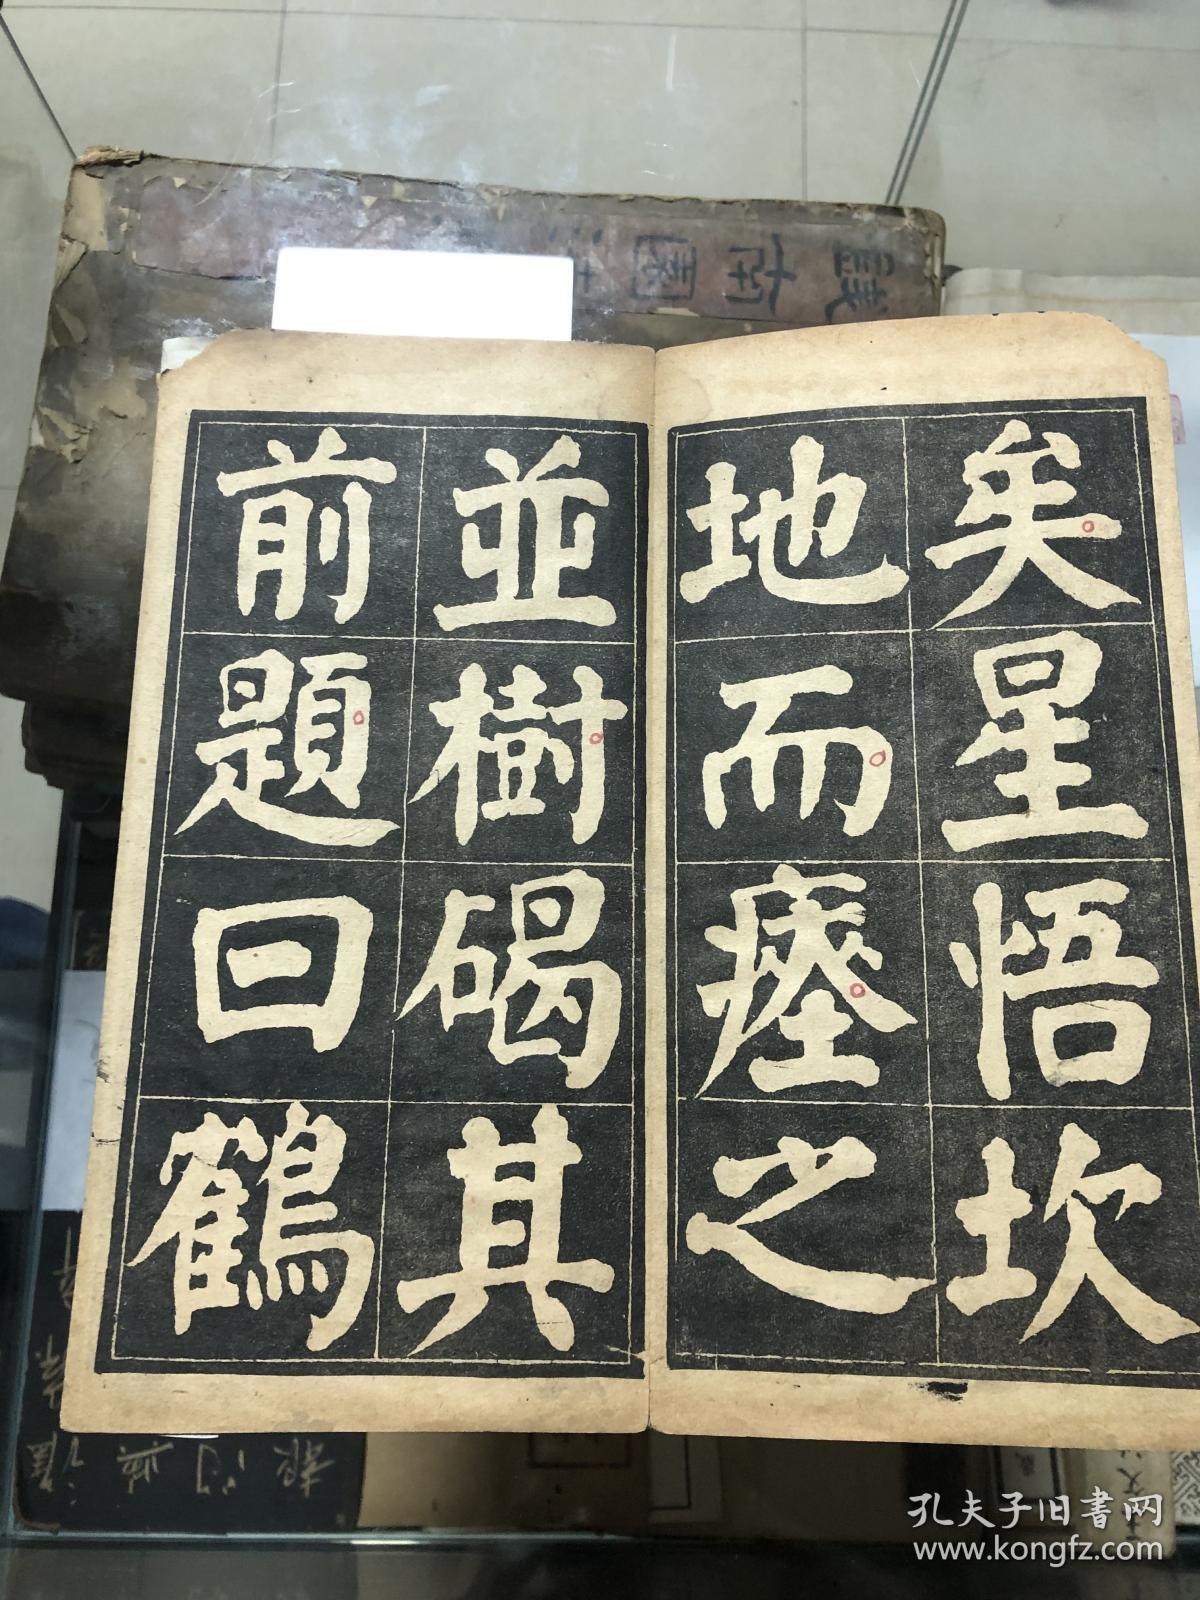 矣星悟坎
地而瘗之
並樹碣其
前題曰鶴
孔夫子旧書网
www.kongfz.com